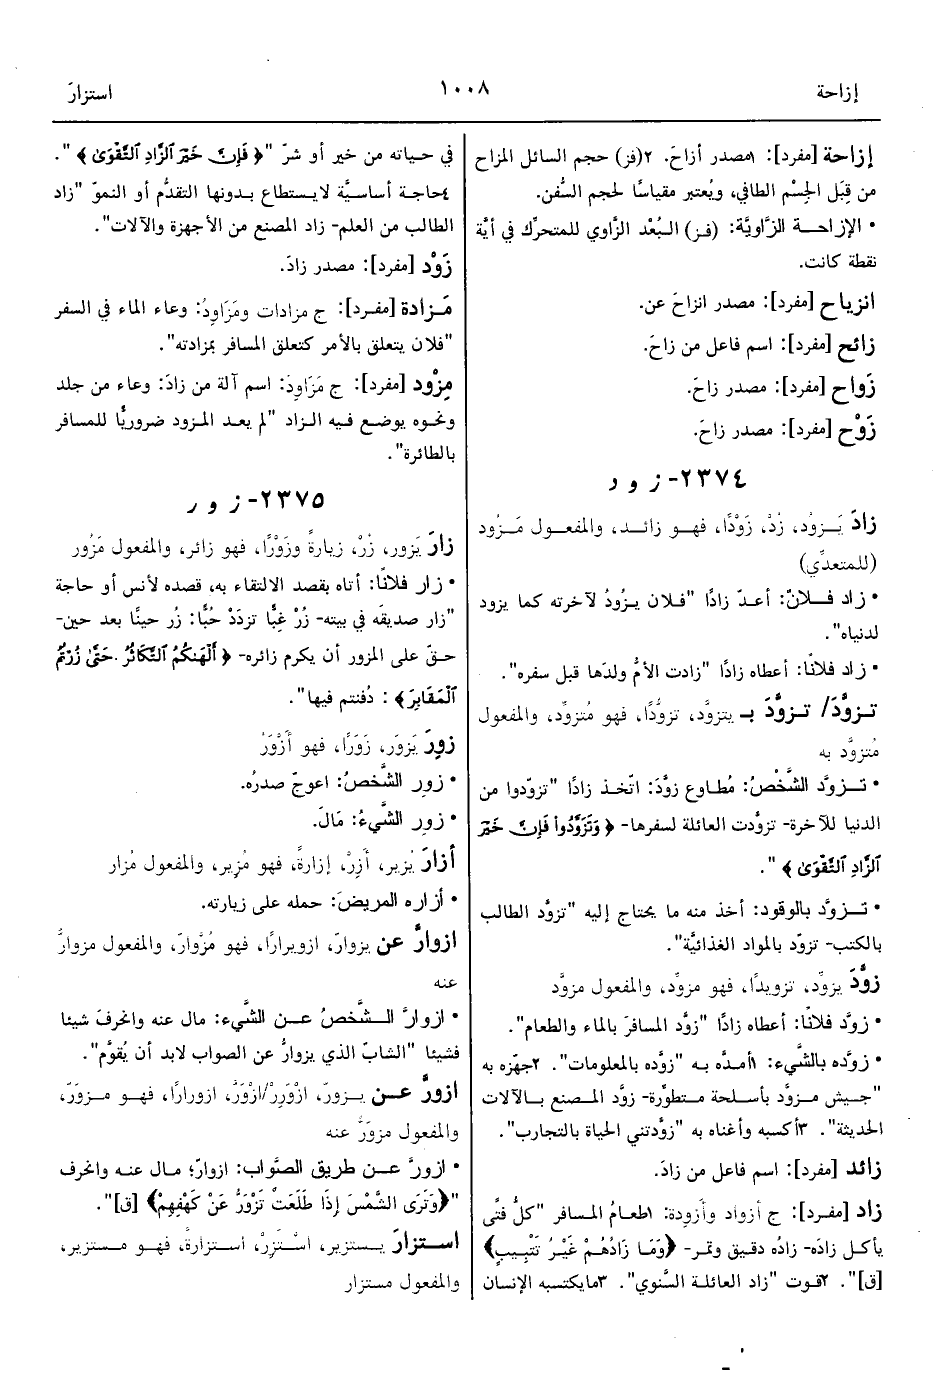 إزاحة
١٠٠٨
استزارَ
إزاحة [مفرد]: ١مصدر أزاحَ. ٢(فز) حجم السائل المزاح
من قِبَل الجِسْم الطافي، ويُعتبر مقياسًا لحجم السُّفن.
• الإزاحـــة الزَّاويَّة: (فـز) البُعْد الزّاوي للمتحرِّك في أيَّة
نقطة كانت.
انزياح [مفرد]: مصدر انزاحَ عن.
زائح [مفرد]: اسم فاعل من زاحَ.
زَواح [مفرد]: مصدر زاحَ.
زَوْح [مفرد]: مصدر زاحَ.
٢٣٧٤- ز و د
زادَ يَـزود، زُدْ، زَوْدًا، فهـو زائـد، والمفعـول مَـزُود
(للمتعدِّي)
• زاد فـــلانٌ: أعـدّ زادًا "فـلان يـزُودُ لآخرته كما يزود
لدنياه".
• زاد فلانًا: أعطاه زادًا "زادت الأمُّ ولدَها قبل سفره".
تـزوَّدَ/ تـزوَّدَ بـ يتزوَّد، تزوُّدًا، فهو مُتزوِّد، والمفعول
مُتزوَّد به
• تـــزوَّد الشَّخْصُ: مُطاوع زوَّدَ: اتّخـذ زادًا "تزوّدوا من
الدنيا للآخرة- تزوَّدت العائلة لسفرها- ﴿ وَتَزَوَّدُوا۟ فَإِنَّ خَيْرَ
ٱلزَّادِ ٱلتَّقْوَىٰ ﴾ ".
• تـــزوَّد بالوقود: أخذ منه ما يحتاج إليه "تزوَّد الطالب
بالكتب- تزوّد بالمواد الغذائيَّة".
زوَّدَ يزوِّد، تزويدًا، فهو مزوِّد، والمفعول مزوَّد
• زوَّد فلانًا: أعطاه زادًا "زوَّد المسافرَ بالماء والطعام".
• زوَّده بالشَّيء: ١أمـدَّه بـه "زوَّده بالمعلومات". ٢جهّزه به
"جـيش مـزوَّد بأسـلحة مـتطوِّرة- زوَّد المـصنع بـالآلات
الحديثة". ٣أكسبه وأغناه به "زوَّدتني الحياة بالتجارب".
زائـد [مفرد]: اسم فاعل من زادَ.
زاد [مفرد]: ج أزواد وأزودة: ١طعـام المـسافر "كلُّ فتًى
يأكـل زادَه- زادُه دقيق وتمـر- ﴿وَمَا زَادُهُمْ غَيْرُ تَتْبِيبٍ﴾
[ق]". ٢قـوت "زاد العائلة السَّنوي". ٣مايكتسبه الإنسان
في حـياته من خير أو شرّ "﴿ فَإِنَّ خَيْرَ ٱلزَّادِ ٱلتَّقْوَىٰ ﴾ ".
٤حاجـة أساسيَّة لايـستطاع بـدونها التقدُّم أو النموّ "زاد
الطالب من العلم- زاد المصنع من الأجهزة والآلات".
زَوْد [مفرد]: مصدر زادَ.
مَـزادة [مفـرد]: ج مزادات ومَزَاوِدُ: وعاء الماء في السفر
"فلان يتعلق بالأمر كتعلق المسافر بمزادته".
مِزْود [مفرد]: ج مَزَاوِدُ: اسم آلة من زادَ: وعاء من جلد
ونحـوه يوضـع فـيه الـزاد "لم يعـد المـزود ضروريًّا للمسافر
بالطائرة".
٢٣٧٥- ز و ر
زارَ يَزور، زُرْ، زيارةً وزَوْرًا، فهو زائر، والمفعول مَزُور
• زار فلانًا: أتاه بقصد الالتقاء به، قصده لأنس أو حاجة
"زار صديقَه في بيته- زُرْ غِبًّا تزددْ حُبًّا: زُر حينًا بعد حين-
حـقّ على المزور أن يكرم زائره- ﴿ أَلْهَىٰكُمُ ٱلتَّكَاثُرُ. حَتَّىٰ زُرْتُمُ
ٱلْمَقَابِرَ ﴾ : دُفنتم فيها".
زوِرَ يَزوَر، زَوَرًا، فهو أَزْوَرُ
• زوِر الشَّخصُ: اعوجّ صدرُه.
• زوِر الشَّيءُ: مَالَ.
أزارَ يُزير، أَزِرْ، إزارةً، فهو مُزِير، والمفعول مُزار
• أزاره المريضَ: حمله على زيارته.
ازوارَّ عن يزوارّ، ازويرارًا، فهو مُزْوارّ، والمفعول مزوارٌّ
عنه
• ازوارَّ الـشَّخصُ عـن الشَّيء: مال عنه وانحرفَ شيئا
فشيئا "الشابّ الذي يزوارُّ عن الصواب لابد أن يُقوَّم".
ازورَّ عـــن يـزورّ، ازْوَرِرْ/ازْوَرَّ، ازورارًا، فهـو مـزورّ،
والمفعول مزوَرٌّ عنه
• ازورَّ عـن طريق الصَّواب: ازوارّ؛ مـال عنـه وانحرف
"﴿وَتَرَى الشَّمْسَ إِذَا طَلَعَتْ تَزْوَرُّ عَنْ كَهْفِهِمْ﴾ [ق]".
استزارَ يـستزير، اسْتَزِرْ، استزارةً، فهـو مـستزير،
والمفعول مستزار